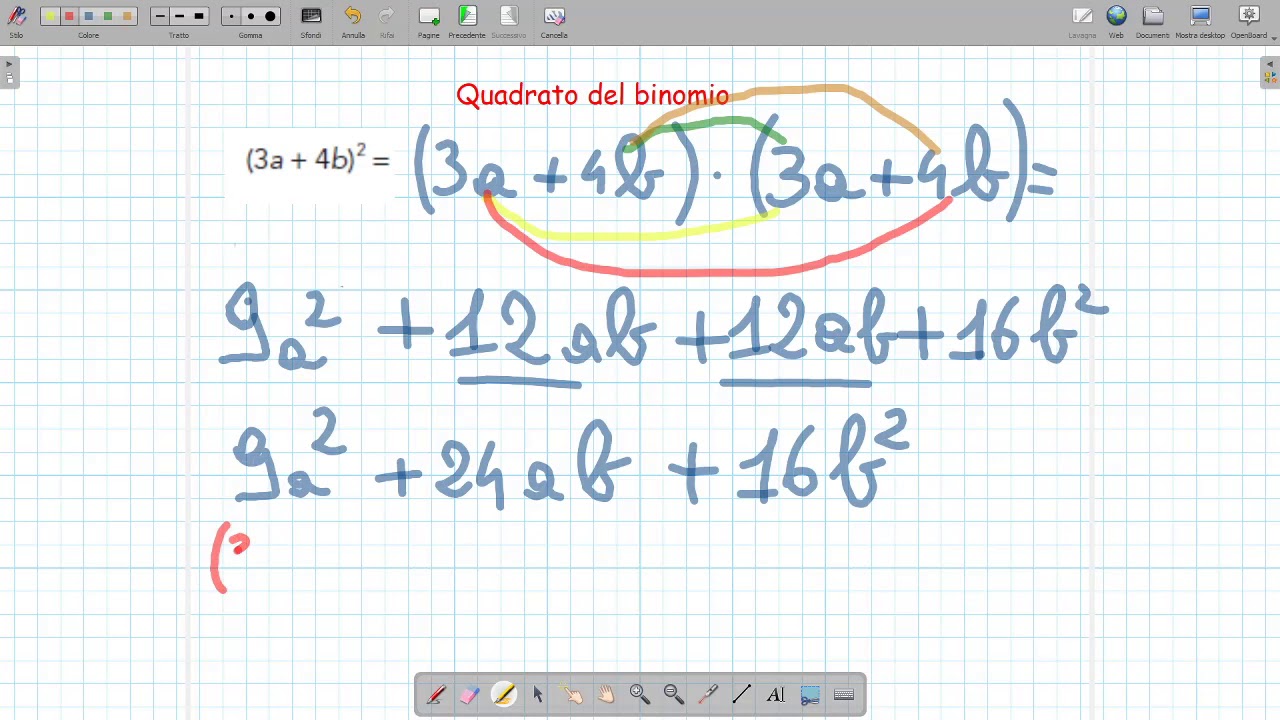 Stilo Colore Tratto Gomma Sfondi Annulla Rifai Pagine Precedente Successivo Cancella Lavagna Web Documenti Mostra desktop OpenBoard
Quadrato del binomio
(3a + 4b)² = (3a+4b)·(3a+4b)=
9a² +12ab +12ab+16b²
9a² +24ab +16b²
(
AI